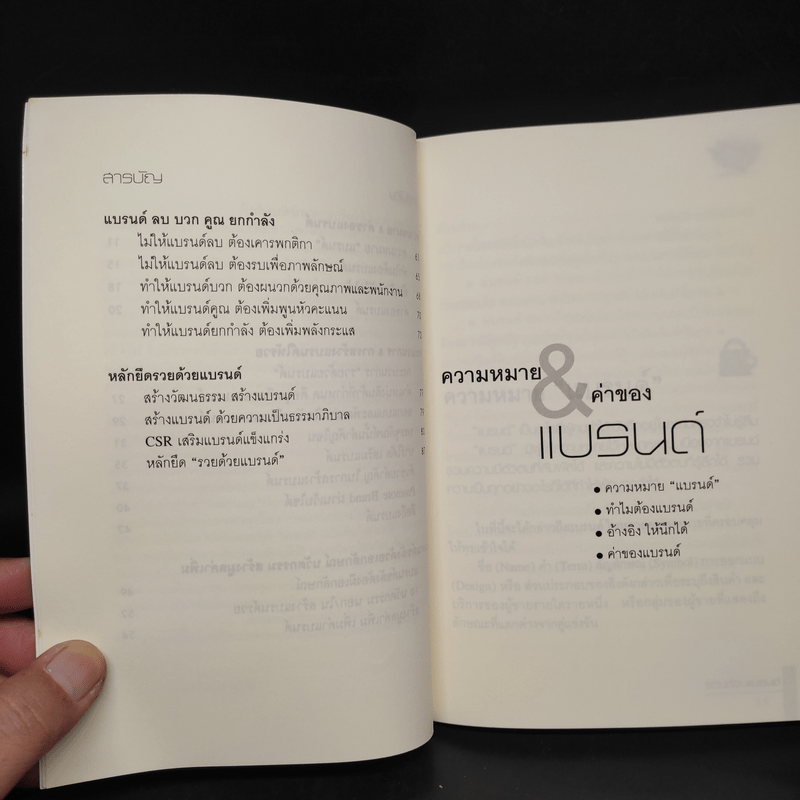 สารบัญ
แบรนด์ ลบ บวก คูณ ยกกำลัง
ไม่ให้แบรนด์ลบ ต้องเคารพกติกา 63
ไม่ให้แบรนด์ลบ ต้องรบเพื่อภาพลักษณ์ 65
ทำให้แบรนด์บวก ต้องผนวกด้วยคุณภาพและพนักงาน 68
ทำให้แบรนด์คูณ ต้องเพิ่มพูนหัวคะแนน
ทำให้แบรนด์ยกกำลัง ต้องเพิ่มพลังกระแส
หลักยึดรวยด้วยแบรนด์
สร้างวัฒนธรรม สร้างแบรนด์
สร้างแบรนด์ ด้วยความเป็นธรรมาภิบาล
CSR เสริมแบรนด์แข็งแกร่ง
หลักยึด “รวยด้วยแบรนด์”
ความหมาย
&
ค่าของ
แบรนด์
• ความหมาย “แบรนด์”
• ทำไมต้องแบรนด์
• อ้างอิง ให้นึกได้
• ค่าของแบรนด์